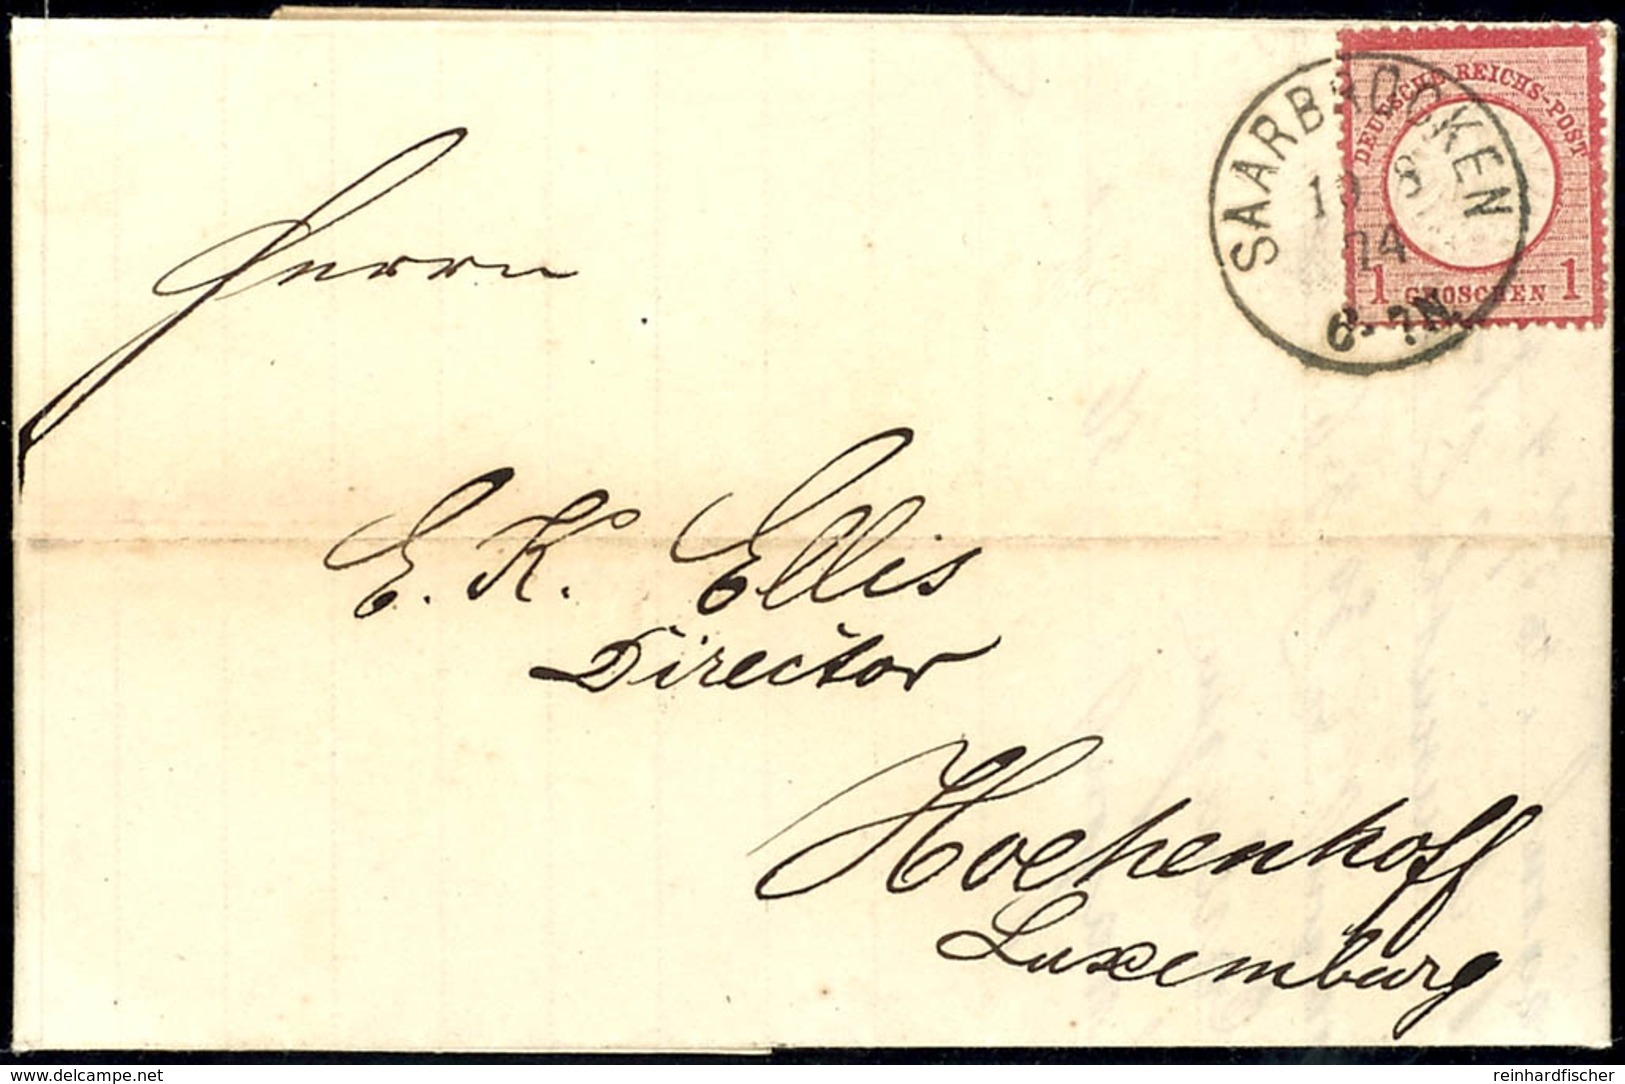 DEUTSCHE REICHS-POST
SAARBRÜCKEN
19 8
74
1 GROSCHEN 1
6-7N.
Herrn
E. K. Ellis
Director
Hochenhoff
Luxemburg
www.delcampe.net
reinhardfischer